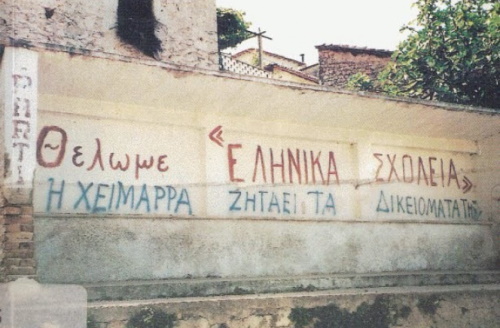 PARTI
Θελωμε «ΕΛΗΝΙΚΑ ΣΧΟΛΕΙΑ»
Η ΧΕΙΜΑΡΡΑ ΖΗΤΑΕΙ ΤΑ ΔΙΚΕΙΟΜΑΤΑ ΤΗΣ